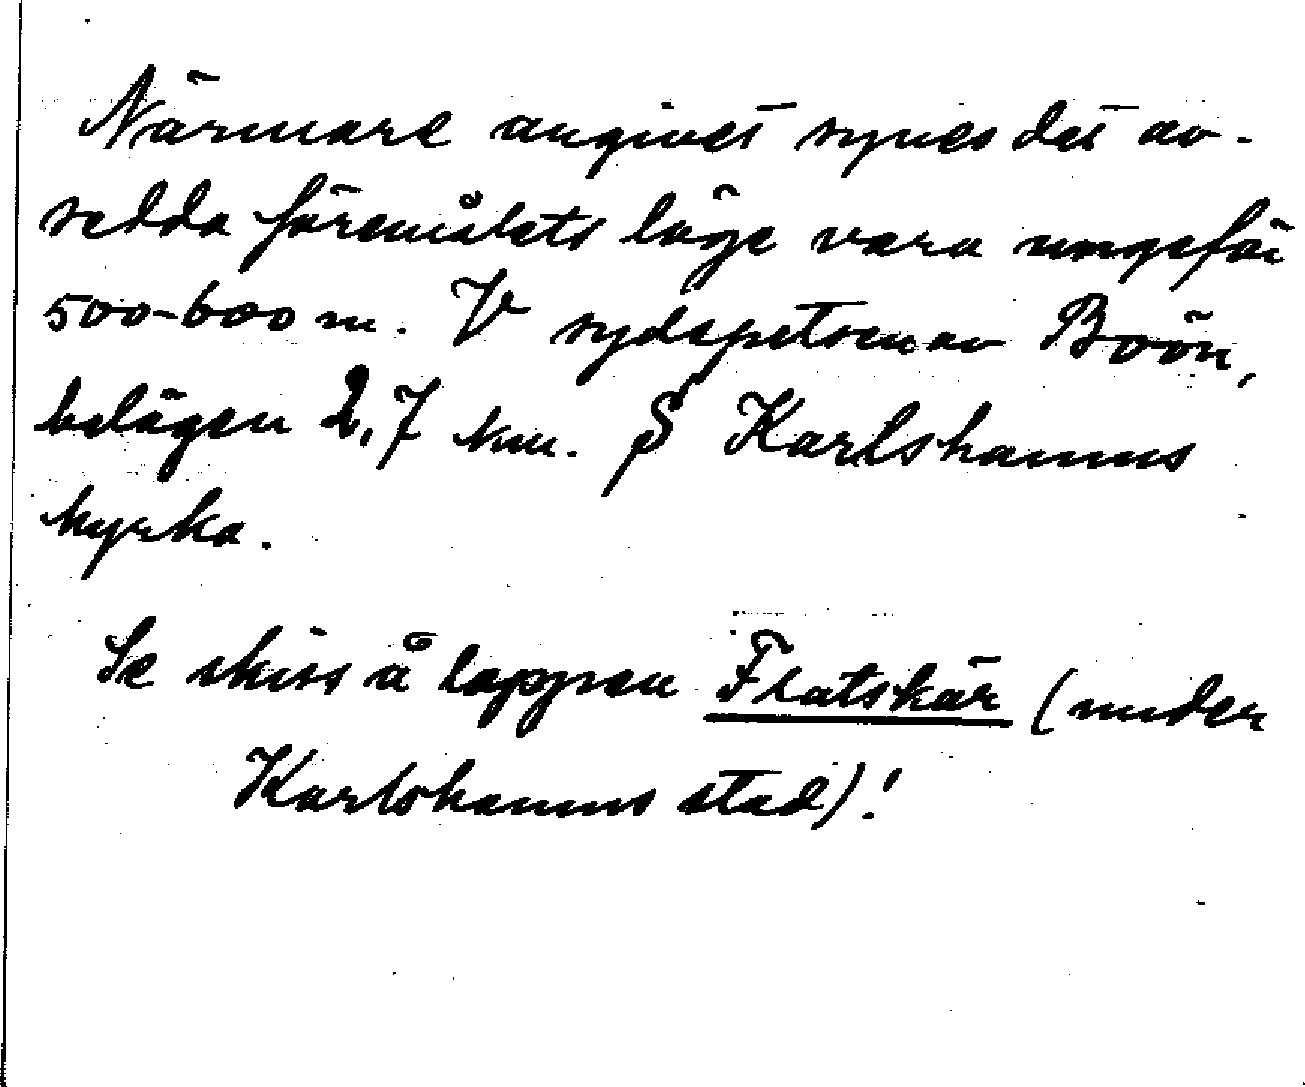 Närmare angivet synes det av-
sedda föremålets läge vara ungefär
500-600 m. V sydspetsen av Boön,
belägen 2,7 km. S Karlshamns
kyrka.
Se skiss å lappen Flatskär (under
Karlshamns stad)!